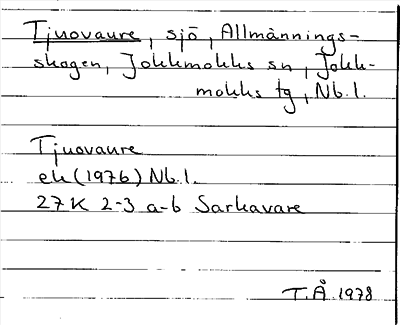 Tjuovaure, sjö, Allmännings-
skogen, Jokkmokks sn, Jokk-
mokks tg, Nb.l.
Tjuovaure
ek (1976) Nb.l.
27K 2-3 a-b Sarkavare
T.Å 1978